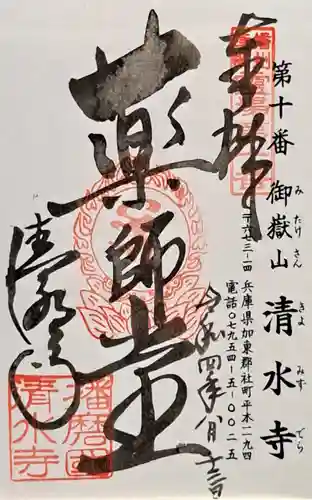 第十番 御嶽山 清水寺
みたけさん きよみずでら
〒六七三―一四 兵庫県加東郡社町平木一一九四
電話〇七九五四―五―〇〇二五
奉拝
令和四年八月十三日
薬師堂
清水寺
播磨国清水寺